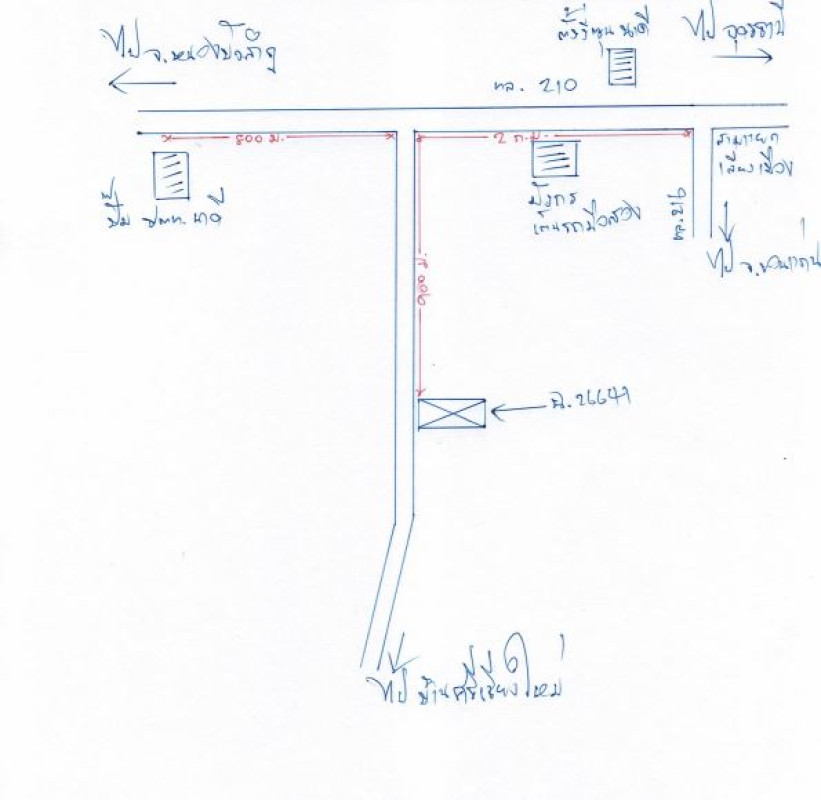 ไป จ.หนองบัวลำภู
ตั้งวีคูน นาดี
ไป อุดรธานี
ทล. 210
800 ม.
2 ก.ม.
สามแยก
เลี่ยงเมือง
ปั๊ม ปตท. นาดี
มังกร
เต็นรถมือสอง
ไป จ.ขอนแก่น
900 ม.
ฉ.26647
ไป บ้านศรีเชียงใหม่